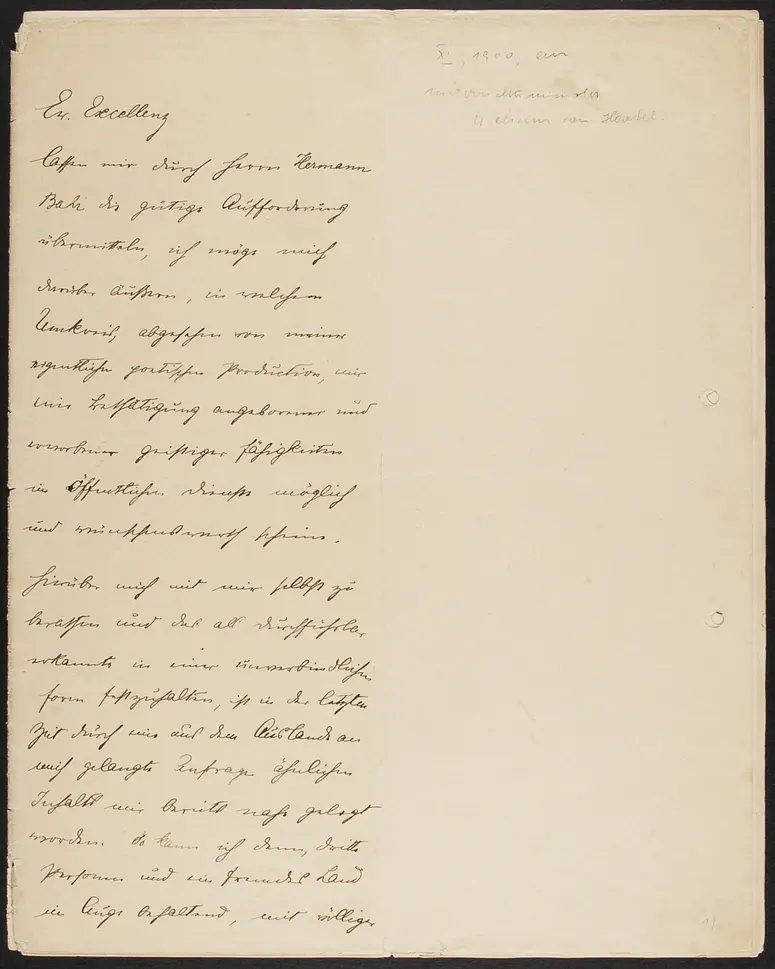 Ew. Excellenz
lassen mir durch Herrn Hermann
Bahr die gütige Aufforderung
übermitteln, ich möge mich
darüber äußern, in welchem
Umkreis, abgesehen von meiner
eigentlichen poetischen Production, mir
eine Bethätigung angeborener und
erworbener geistiger Fähigkeiten
im öffentlichen Dienste möglich
und wünschenswerth scheine.
Hierüber mich mit mir selbst zu
berathen und das als durchführbar
erkannte in einer unverbindlichen
Form festzuhalten, ist in der letzten
Zeit durch eine aus dem Auslande an
mich gelangte Anfrage ähnlichen
Inhalts mir bereits nahe gelegt
worden. So kann ich denn, dritte
Personen und ein fremdes Land
im Auge behaltend, mit völliger
XI, 1900, an
Unterrichtsminister
Wilhelm von Hartel.